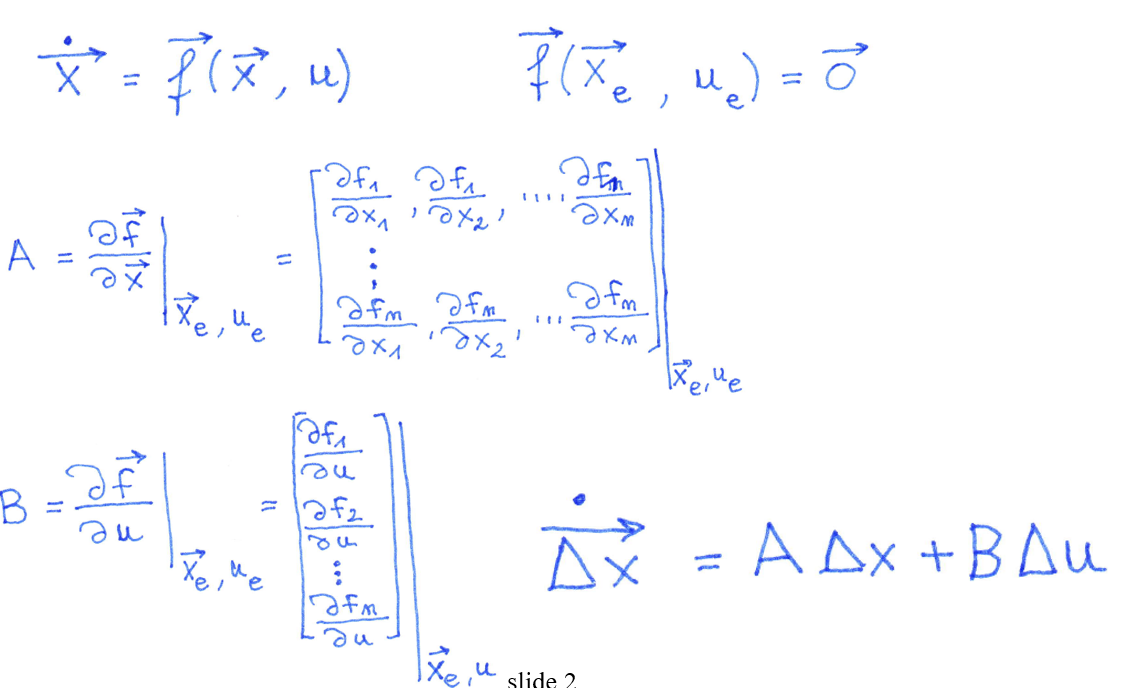 ẋ⃗ = f⃗(x⃗, u)   f⃗(x⃗_e, u_e) = 0⃗
A = ∂f⃗/∂x⃗ |_{x⃗_e, u_e} = [∂f₁/∂x₁, ∂f₁/∂x₂, .... ∂fₙ/∂xₙ
⋮
∂fₙ/∂x₁, ∂fₙ/∂x₂, ... ∂fₙ/∂xₙ] |_{x⃗_e, u_e}
B = ∂f⃗/∂u |_{x⃗_e, u_e} = [∂f₁/∂u
∂f₂/∂u
⋮
∂fₙ/∂u] |_{x⃗_e, u}
Δẋ⃗ = A Δx + B Δu
slide 2